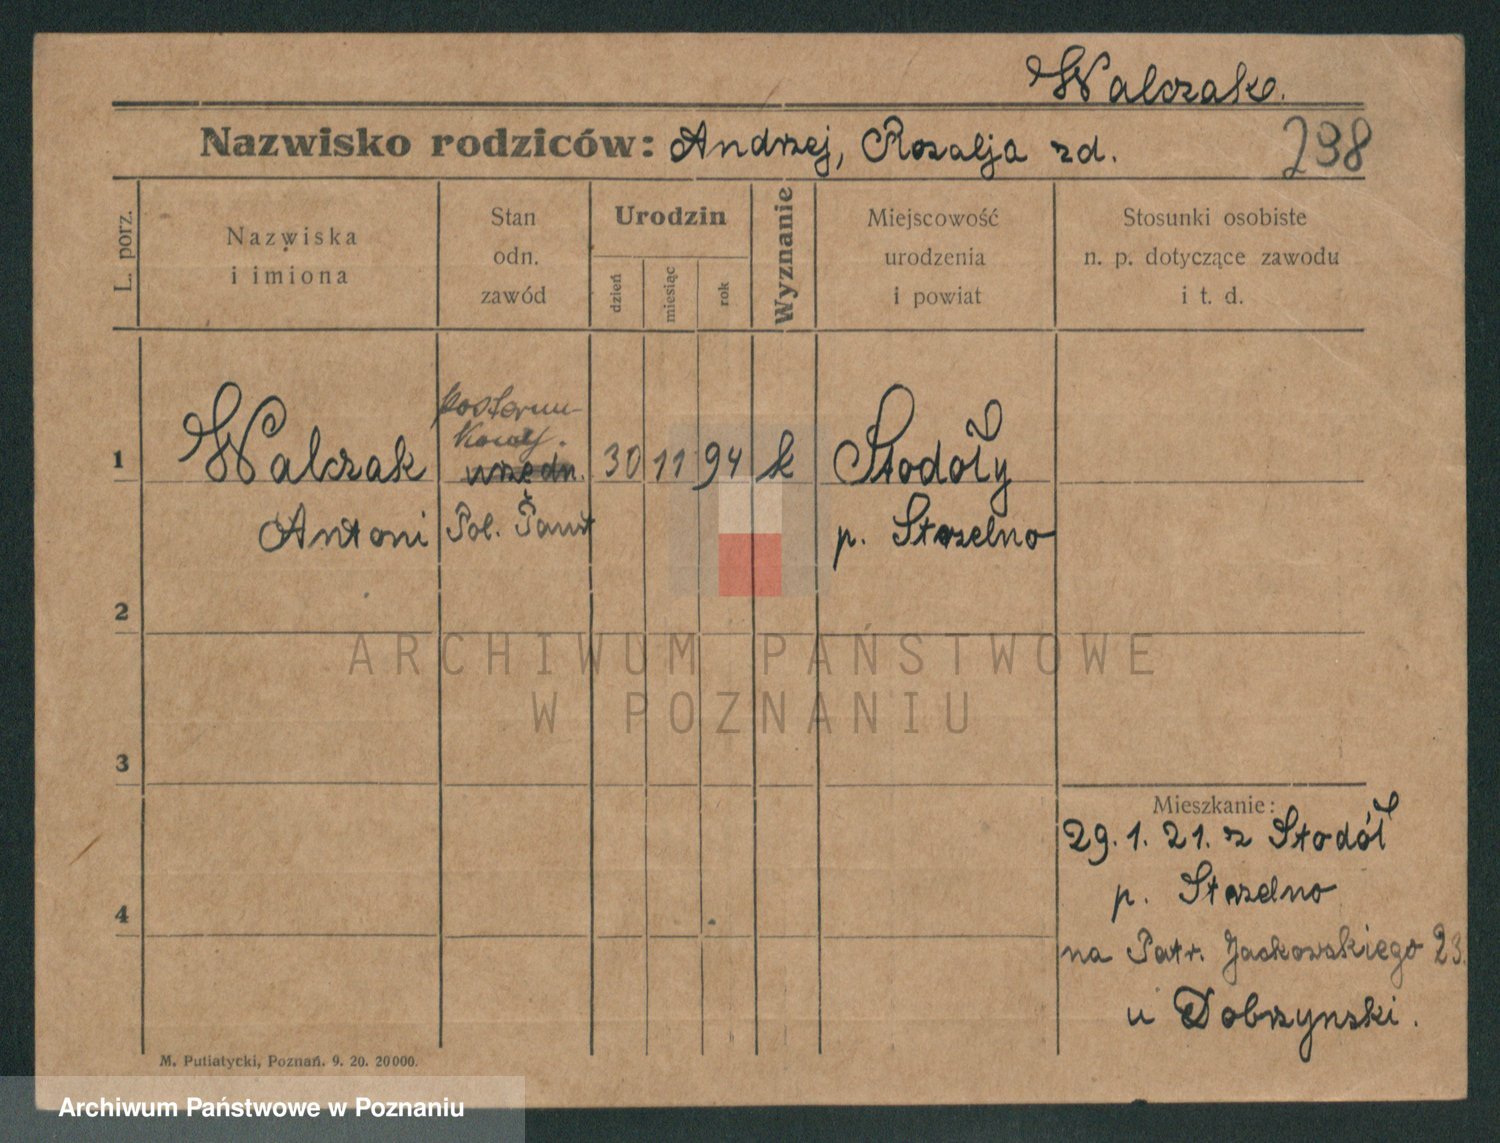 Walczak.
Nazwisko rodziców: Andrzej, Rozalja zd.
298
L. porz.
Nazwiska
i imiona
Stan
odn.
zawód
Urodzin
dzień
miesiąc
rok
Wyznanie
Miejscowość
urodzenia
i powiat
Stosunki osobiste
n. p. dotyczące zawodu
i t. d.
1
Walczak
Antoni
posterun-
kowy.
urzędn.
Pol. Państ
30 11 94 k
Stodoły
p. Strzelno
2
3
4
Mieszkanie:
29. 1. 21. z Stodół
p. Strzelno
na Patr. Jackowskiego 23.
u Dobrzynski.
M. Putiatycki, Poznań. 9. 20. 20000.
ARCHIWUM PAŃSTWOWE
W POZNANIU
Archiwum Państwowe w Poznaniu